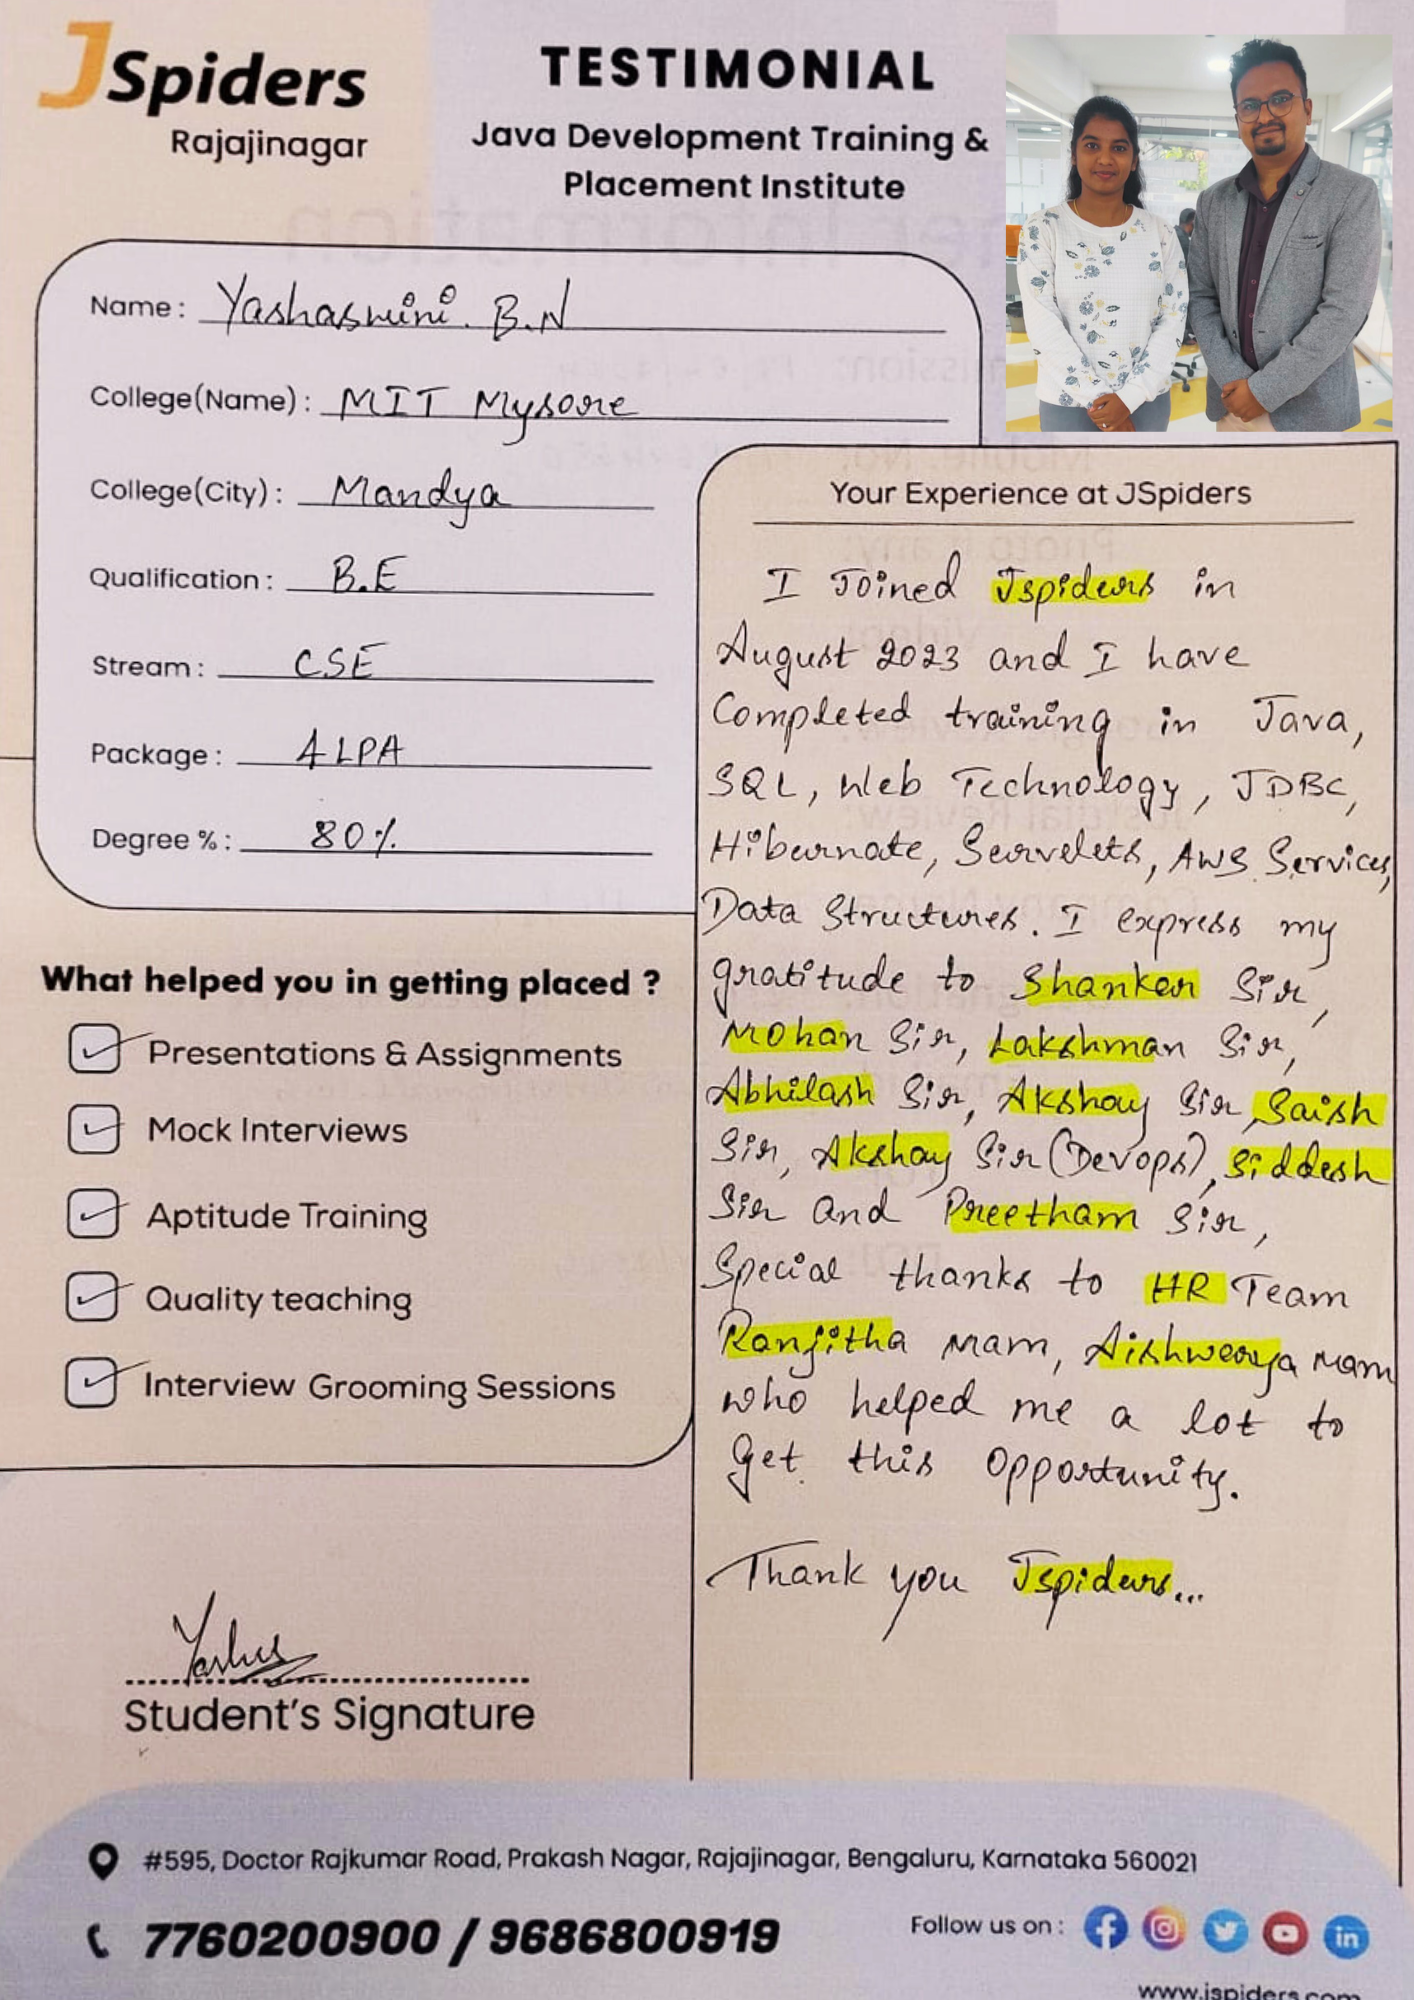 JSpiders
Rajajinagar
TESTIMONIAL
Java Development Training &
Placement Institute
Name : Yashaswini. B.N
College(Name) : MIT Mysore
College(City) : Mandya
Qualification : B.E
Stream : CSE
Package : 4 LPA
Degree % : 80%
What helped you in getting placed ?
Presentations & Assignments
Mock Interviews
Aptitude Training
Quality teaching
Interview Grooming Sessions
Your Experience at JSpiders
I Joined Jspiders in
August 2023 and I have
Completed training in Java,
SQL, Web Technology, JDBC,
Hibernate, Servelets, AWS Services,
Data Structures. I express my
gratitude to Shanker Sir,
Mohan Sir, Lakshman Sir,
Abhilash Sir, Akshay Sir, Saish
Sir, Akshay Sir (Devops), Siddesh
Sir and Preetham Sir,
Special thanks to HR Team
Ranjitha Mam, Aishwarya Mam
who helped me a lot to
get this opportunity.
Thank you Jspiders...
Student's Signature
#595, Doctor Rajkumar Road, Prakash Nagar, Rajajinagar, Bengaluru, Karnataka 560021
7760200900 / 9686800919
Follow us on :
www.jspiders.com